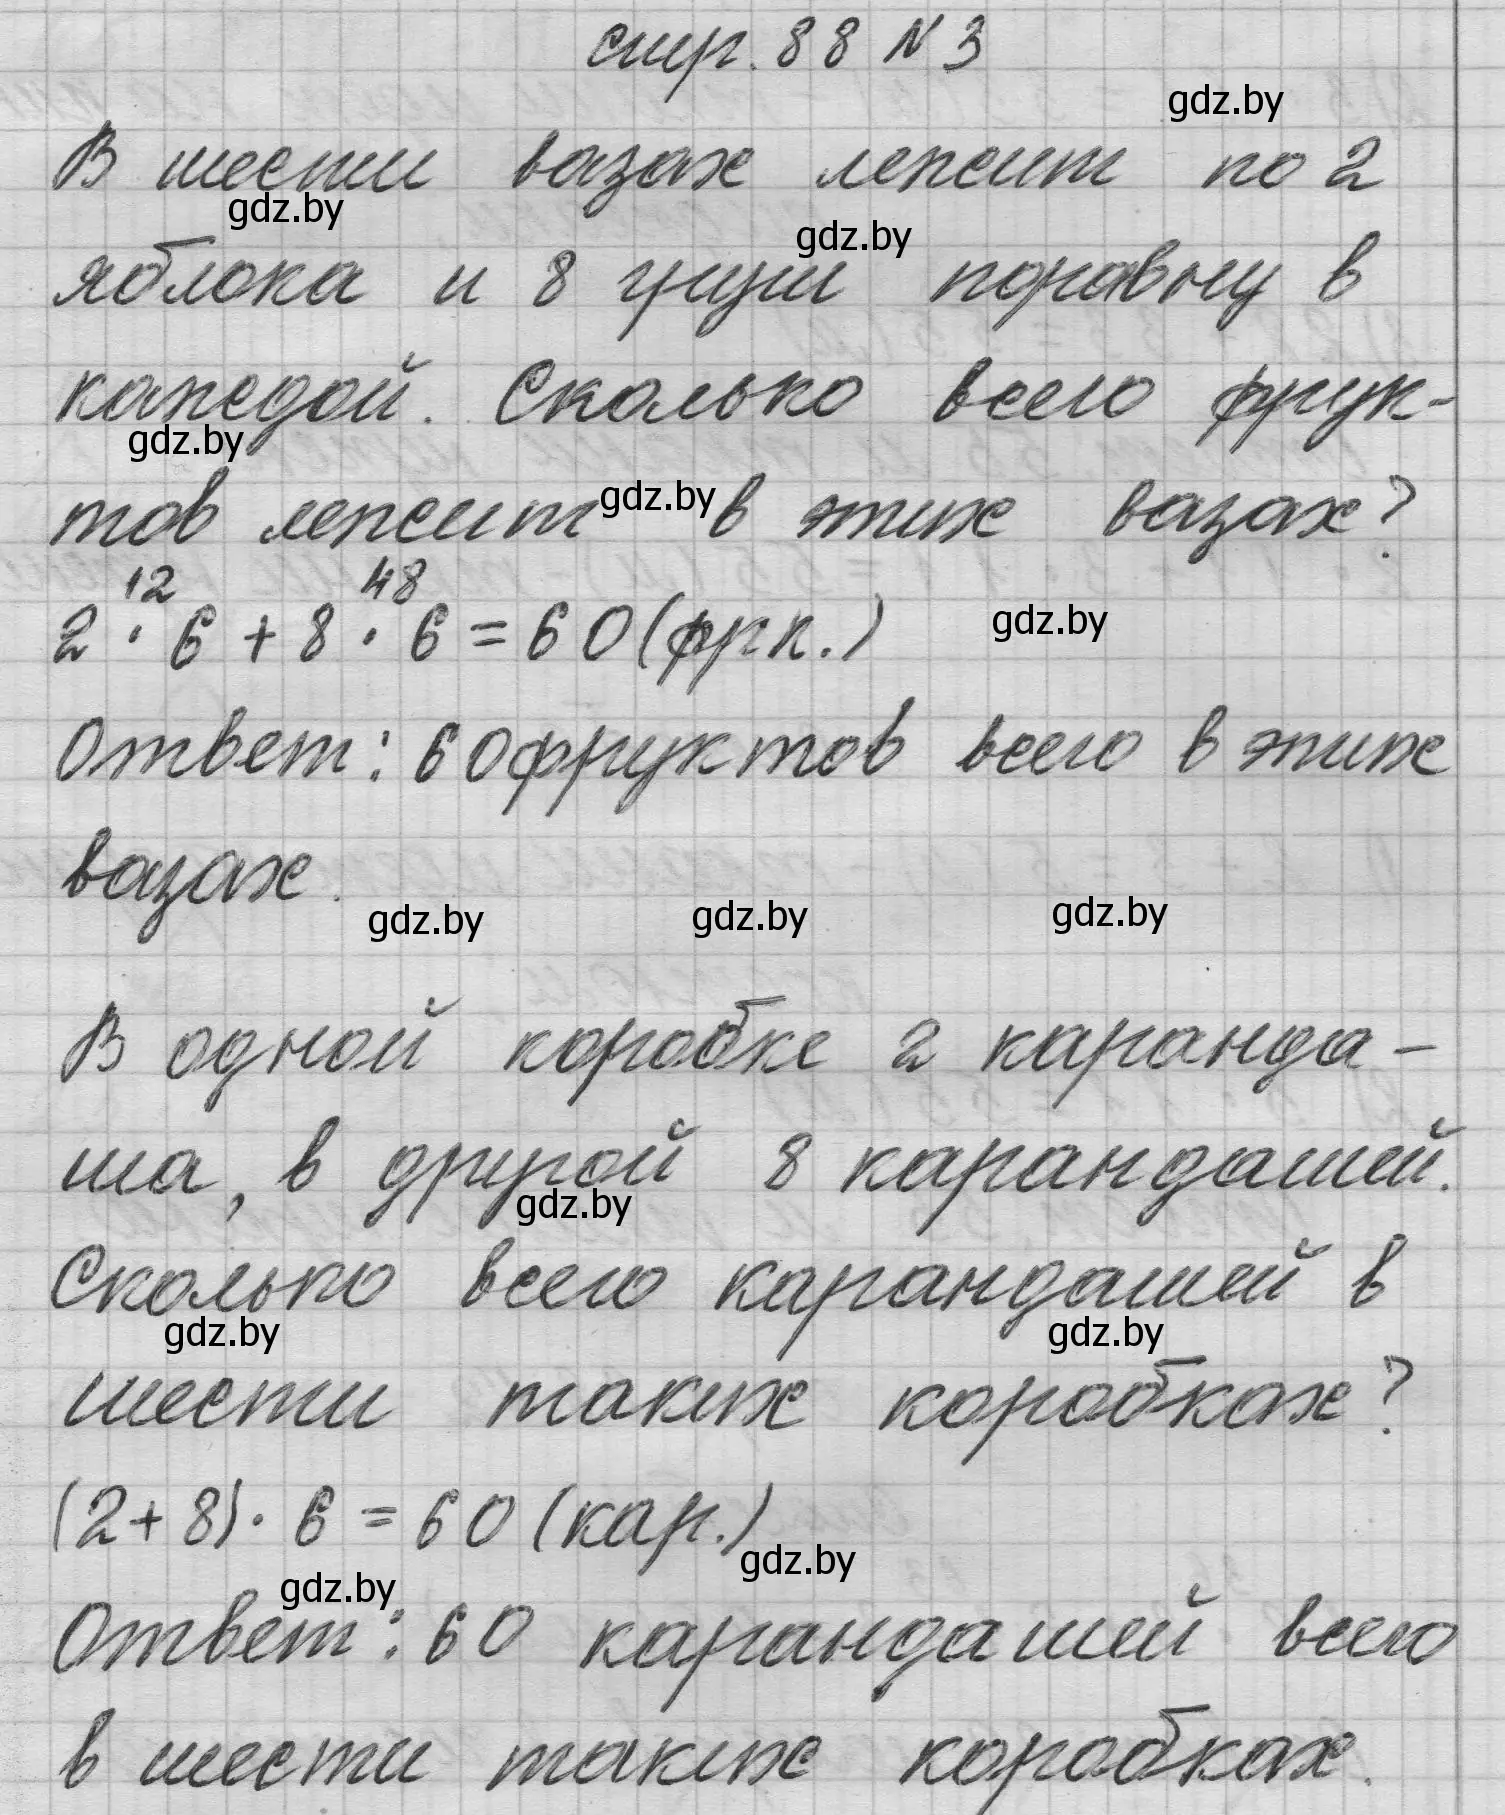 стр. 88 № 3
gdz.by
В шести вазах лежит по 2
gdz.by
gdz.by
яблока и 8 груш поравну в
каждой. Сколько всего фрук-
gdz.by
тов лежит в этих вазах?
gdz.by
12 48
2 · 6 + 8 · 6 = 60 (фрк.)
gdz.by
Ответ: 60 фруктов всего в этих
вазах.
gdz.by gdz.by gdz.by
В одной коробке 2 каранда-
ша, в другой 8 карандашей.
gdz.by
Сколько всего карандашей в
gdz.by gdz.by
шести таких коробках?
(2 + 8) · 6 = 60 (кар.)
gdz.by
gdz.by
Ответ: 60 карандашей всего
в шести таких коробках.